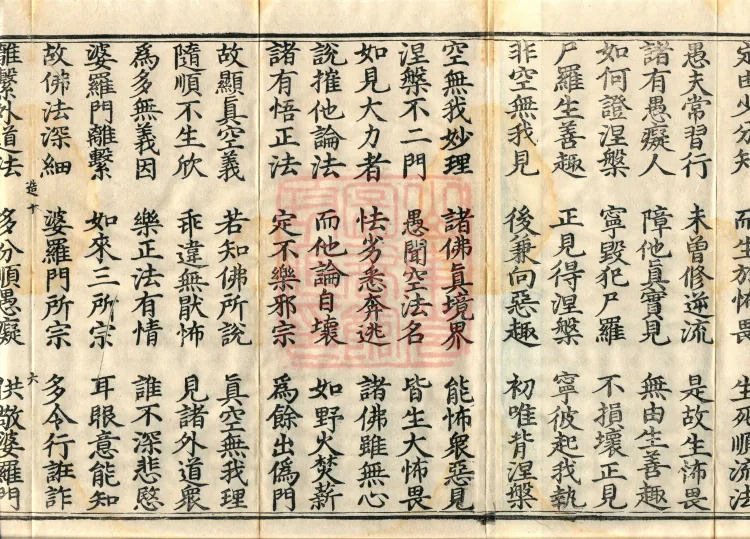 定由少分知 而生於怖畏 生死順流法
愚夫常習行 未曾修逆流 是故生怖畏
諸有愚癡人 障他眞實見 無由生善趣
如何證涅槃 寧毀犯尸羅 不損壞正見
尸羅生善趣 正見得涅槃 寧彼起我執
非空無我見 後兼向惡趣 初唯背涅槃
空無我妙理 諸佛眞境界 能怖衆惡見
涅槃不二門 愚聞空法名 皆生大怖畏
如見大力者 怯劣悉奔逃 諸佛雖無心
說摧他論法 而他論自壞 如野火焚薪
諸有悟正法 定不樂邪宗 爲餘出僞門
故顯眞空義 若知佛所說 眞空無我理
隨順不生欣 乖違無猒怖 見諸外道衆
爲多無義因 樂正法有情 誰不深悲愍
婆羅門離繫 如來三所宗 耳眼意能知
故佛法深細 婆羅門所宗 多令行誑詐
造十 六
離繫外道法 多分順愚癡 供敬婆羅門